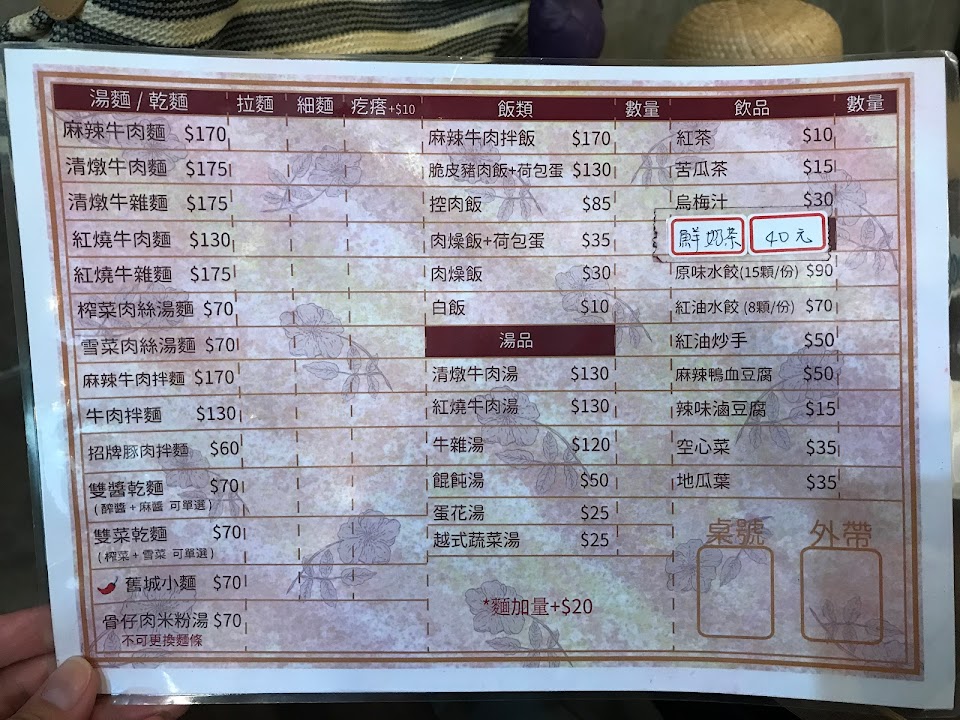 湯麵 / 乾麵 拉麵 細麵 疙瘩+$10
麻辣牛肉麵 $170
清燉牛肉麵 $175
清燉牛雜麵 $175
紅燒牛肉麵 $130
紅燒牛雜麵 $175
榨菜肉絲湯麵 $70
雪菜肉絲湯麵 $70
麻辣牛肉拌麵 $170
牛肉拌麵 $130
招牌豚肉拌麵 $60
雙醬乾麵 $70
(醡醬 + 麻醬 可單選)
雙菜乾麵 $70
(榨菜 + 雪菜 可單選)
舊城小麵 $70
骨仔肉米粉湯 $70
不可更換麵條
飯類 數量
麻辣牛肉拌飯 $170
脆皮豬肉飯+荷包蛋 $130
控肉飯 $85
肉燥飯+荷包蛋 $35
肉燥飯 $30
白飯 $10
湯品
清燉牛肉湯 $130
紅燒牛肉湯 $130
牛雜湯 $120
餛飩湯 $50
蛋花湯 $25
越式蔬菜湯 $25
*麵加量+$20
飲品 數量
紅茶 $10
苦瓜茶 $15
烏梅汁 $30
鮮奶茶 40元
原味水餃(15顆/份) $90
紅油水餃 (8顆/份) $70
紅油炒手 $50
麻辣鴨血豆腐 $50
辣味滷豆腐 $15
空心菜 $35
地瓜葉 $35
桌號 外帶